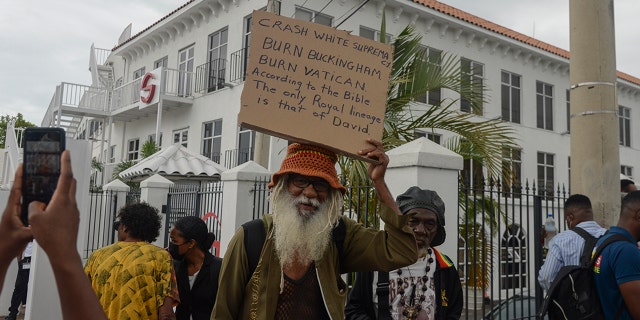 CRASH WHITE SUPREMACY
BURN BUCKINGHAM
BURN VATICAN
According to the Bible
The only Royal lineage
is that of David